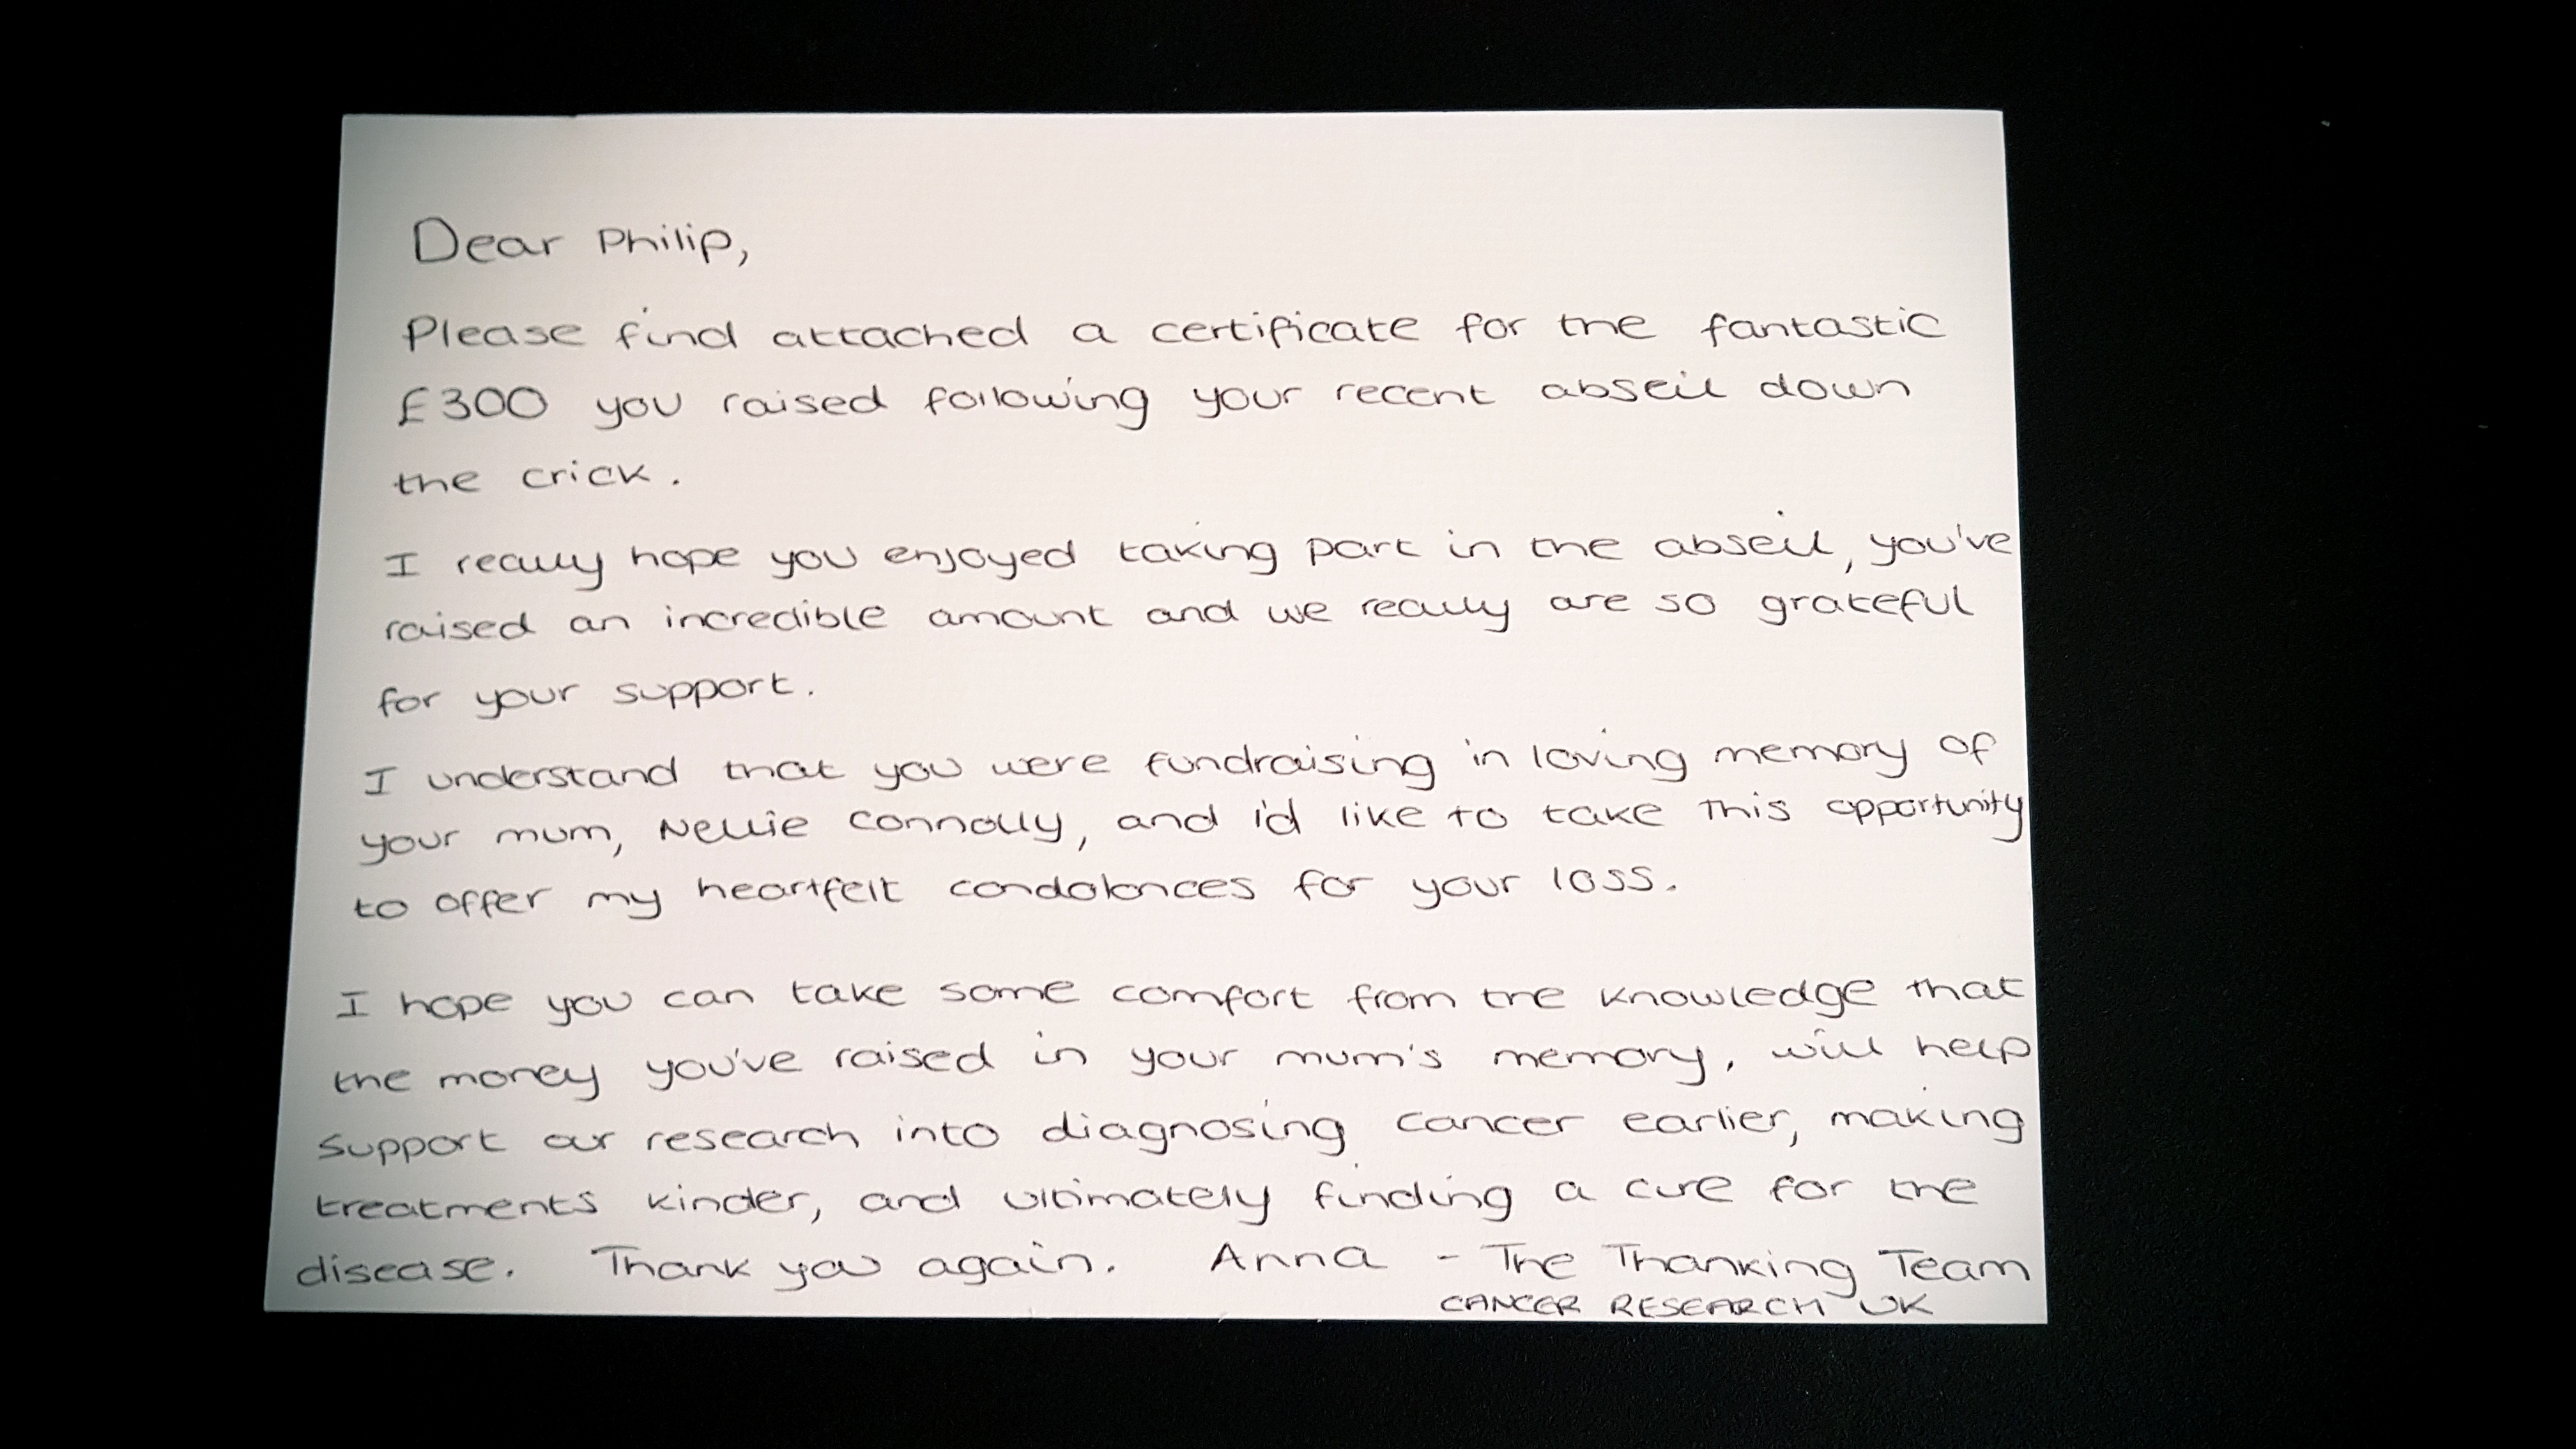 Dear Philip,
Please find attached a certificate for the fantastic
£300 you raised following your recent abseil down
the crick.
I really hope you enjoyed taking part in the abseil, you've
raised an incredible amount and we really are so grateful
for your support.
I understand that you were fundraising in loving memory of
your mum, Nellie Connolly, and i'd like to take this opportunity
to offer my heartfelt condolences for your loss.
I hope you can take some comfort from the knowledge that
the money you've raised in your mum's memory, will help
support our research into diagnosing cancer earlier, making
treatments kinder, and ultimately finding a cure for the
disease. Thank you again. Anna - The Thanking Team
CANCER RESEARCH UK